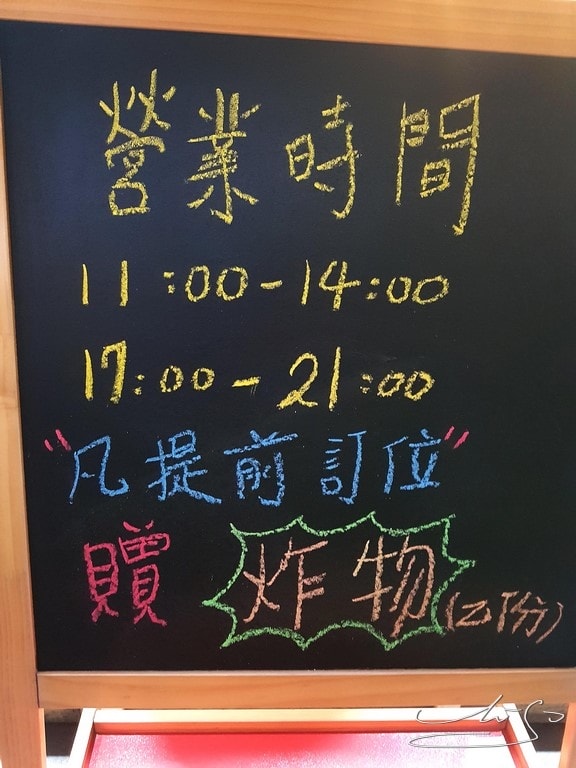 營業時間
11:00-14:00
17:00-21:00
"凡提前訂位"
贈 炸物(乙份)